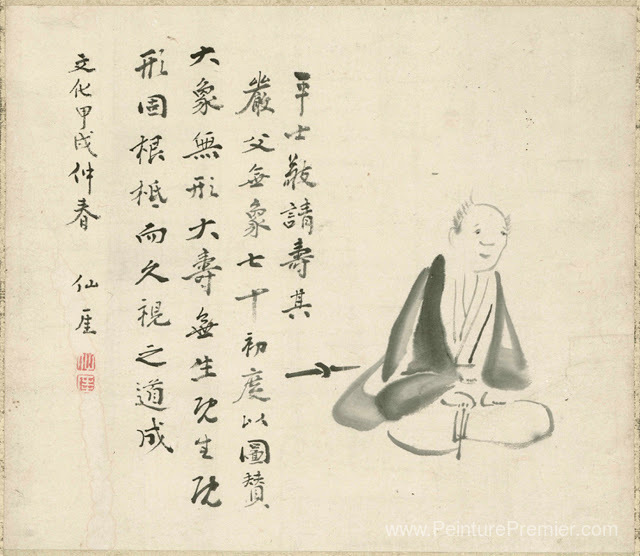 平士敬請壽其
嚴父無象七十初度以圖贊
大象無形大壽無生既生既
形固根柢而久視之道成
文化甲戌仲春 仙厓
www.PeinturePremier.com